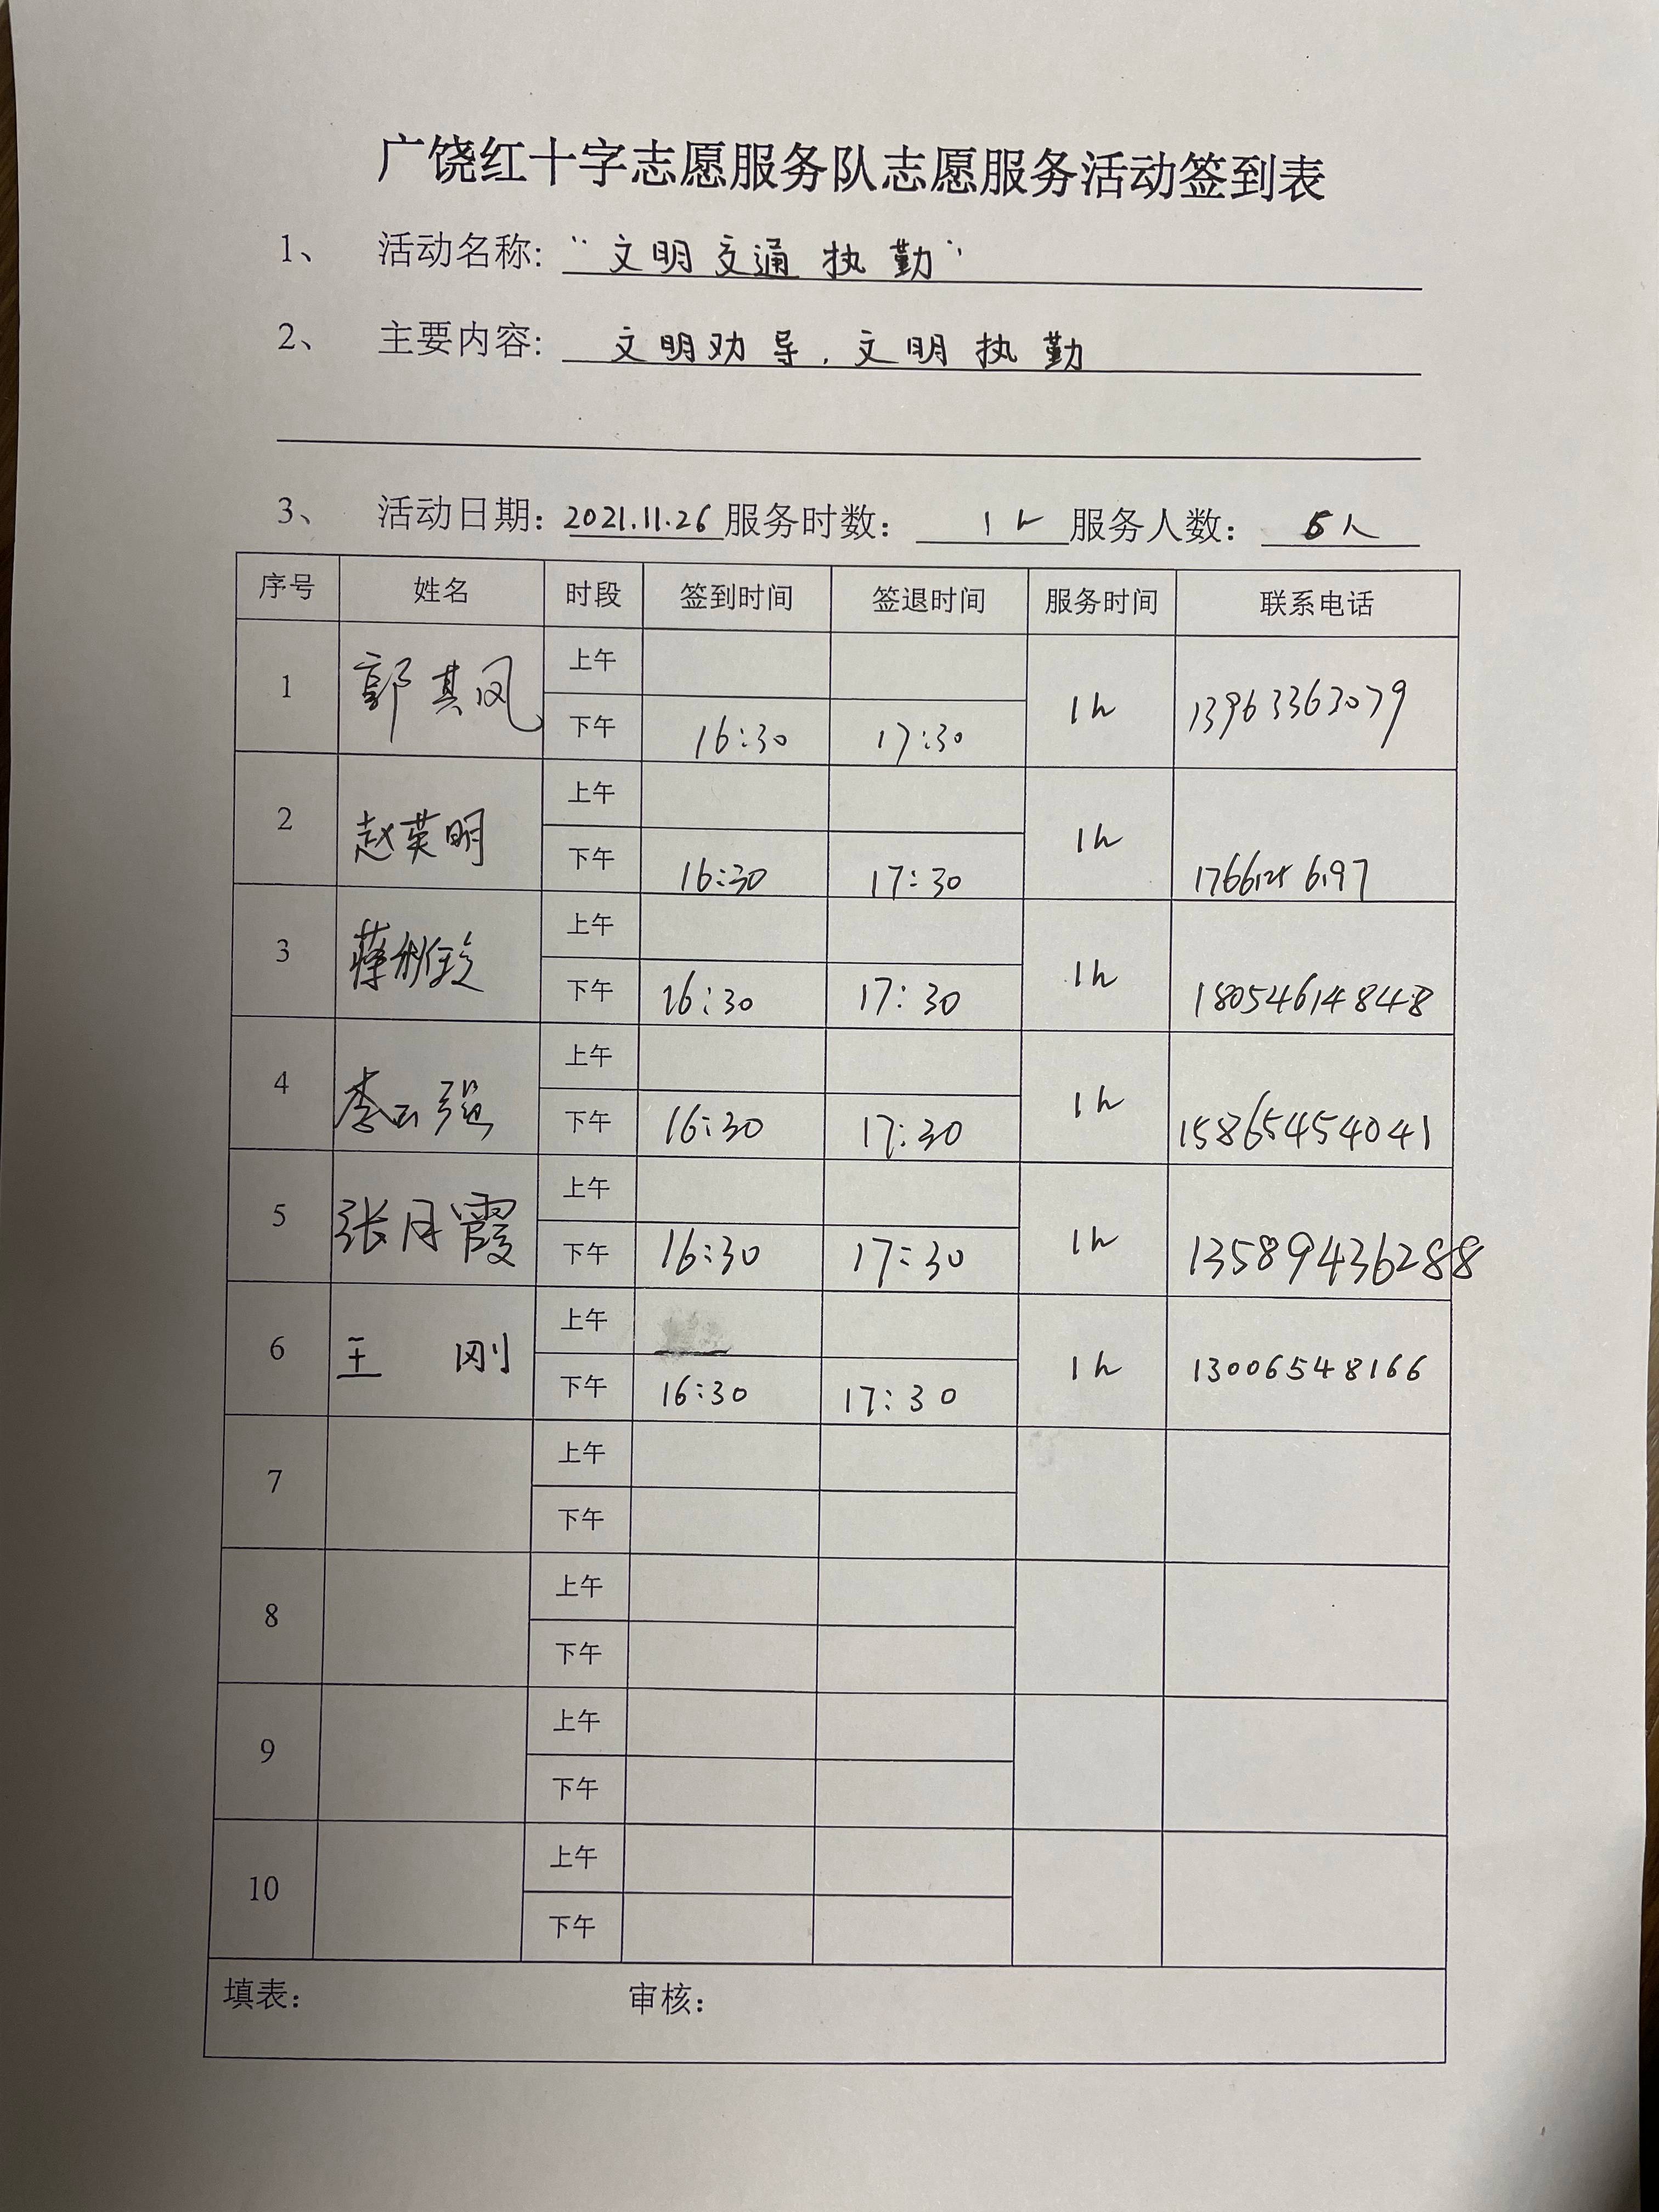 广饶红十字志愿服务队志愿服务活动签到表
1、 活动名称: “文明交通执勤”
2、 主要内容: 文明劝导，文明执勤
3、 活动日期: 2021.11.26 服务时数: 1h 服务人数: 6人
序号 姓名 时段 签到时间 签退时间 服务时间 联系电话
上午
1 郭其凤 1h 13963363079
下午 16:30 17:30
上午
2 赵英明 1h
下午 16:30 17:30
上午
3 蒋 1h 18054614848
下午 16:30 17:30
上午
4 李云强 1h 15865454041
下午 16:30 17:30
上午
5 张月霞 1h 13589436288
下午 16:30 17:30
上午
6 王刚 1h 13006548166
下午 16:30 17:30
上午
7
下午
上午
8
下午
上午
9
下午
上午
10
下午
填表: 审核: